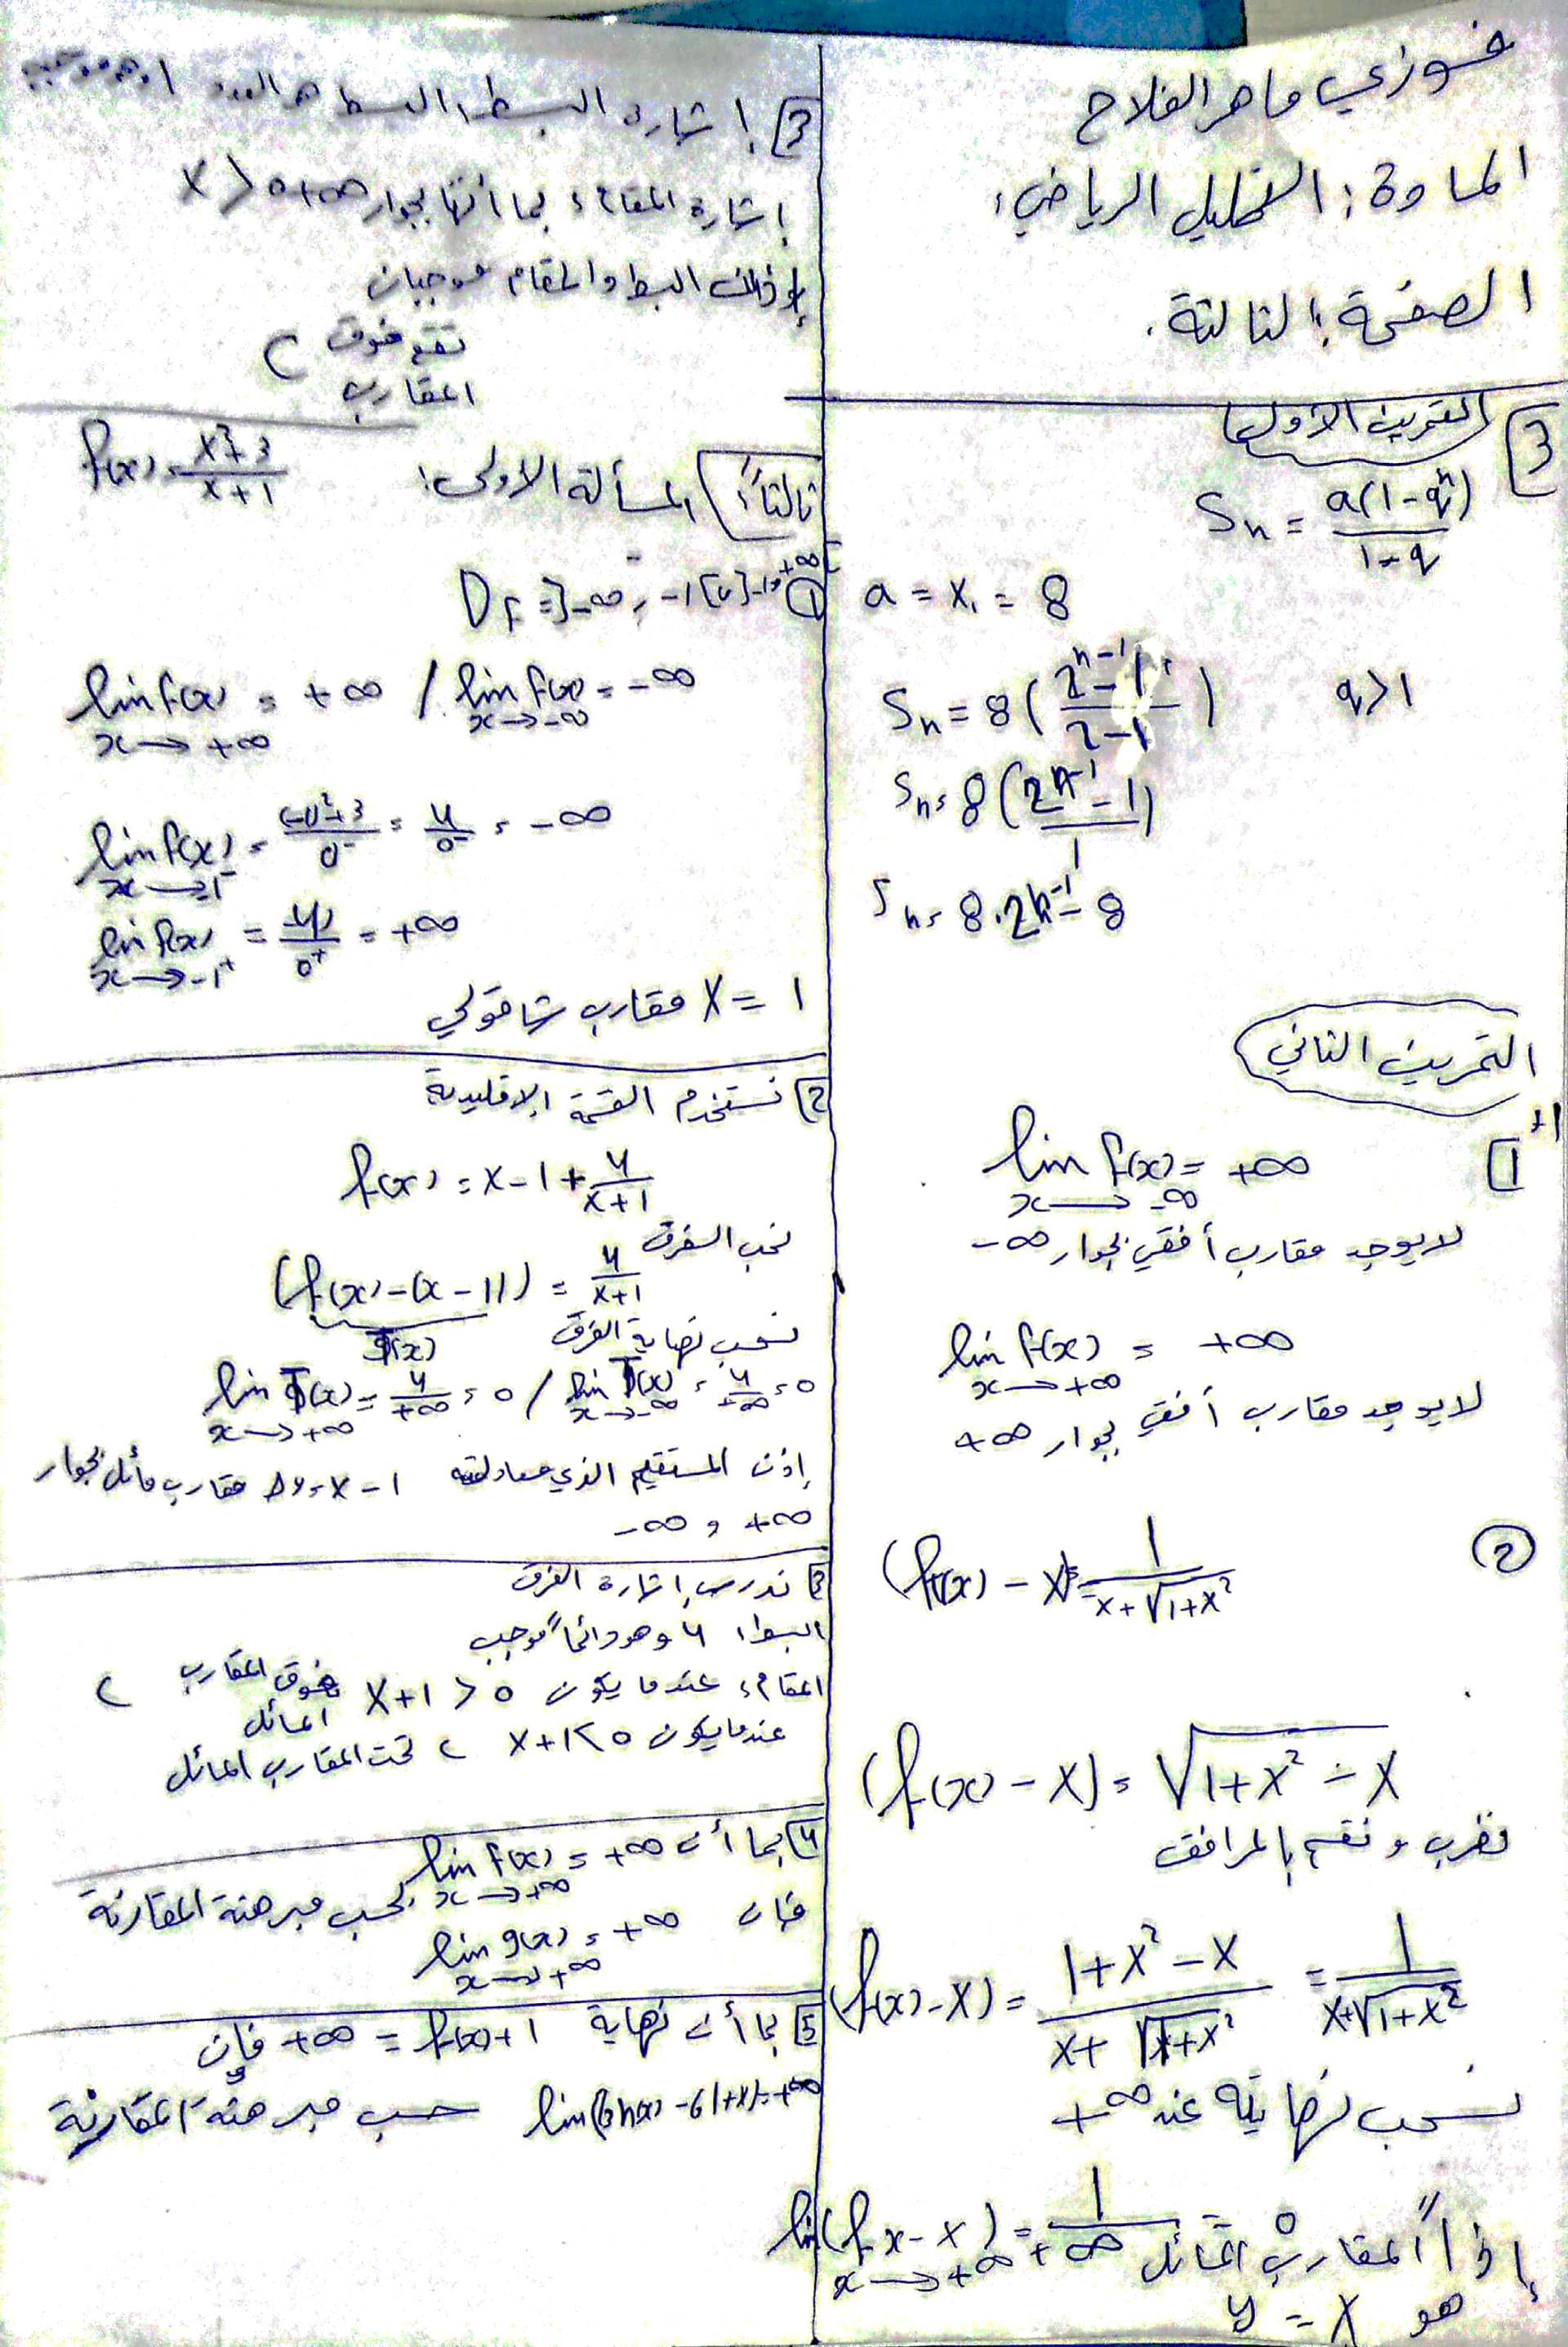 فوزي ماهر الفلاح
المادة: التحليل الرياضي:
الصفحة: الثالثة.
3 التمرين الأول:
Sn = a(1-qⁿ) / 1-q
a = x₁ = 8
Sn = 8 ( 2ⁿ⁻¹ - 1 / 2-1 ) q>1
Sn = 8 ( 2ⁿ⁻¹ - 1 ) / 1
Sn = 8.2ⁿ⁻¹ - 8
التمرين الثاني
1
lim f(x) = +∞
x→-∞
لا يوجد مقارب أفقي بجوار -∞
lim f(x) = +∞
x→+∞
لا يوجد مقارب أفقي بجوار +∞
2 (f(x) - x) = 1 / x+√1+x²
(f(x) - x) = √1+x² - x
نضرب و نقسم بالمرافق
(f(x) - x) = 1+x² - x / x+√1+x² = 1 / x+√1+x²
نحسب نهايته عند +∞
lim (fx - x) = 1 / +∞ = 0
x→+∞
إذاً المقارب المائل
هو y = x
3 إشارة البسط: البسط هو العدد 1 وهو موجب
إشارة المقام: بما أنها بجوار +∞ x > 0
إذ ذاك البسط والمقام موجبان
C تقع فوق
المقارب
ثالثاً: المسألة الأولى: f(x) = x²+3 / x+1
1 Df = ]-∞, -1[ ∪ ]-1, +∞[
lim f(x) = +∞ / lim f(x) = -∞
x→+∞ x→-∞
lim f(x) = (-1)²+3 / 0⁻ = 4 / 0⁻ = -∞
x→-1⁻
lim f(x) = 4 / 0⁺ = +∞
x→-1⁺
x = 1 مقارب شاقولي
2 نستخدم القسمة الإقليدية
f(x) = x-1 + 4 / x+1
نحسب الفرق
(f(x) - (x-1)) = 4 / x+1
T(x)
نحسب نهاية الفرق
lim T(x) = 4 / +∞ = 0 / lim T(x) = 4 / -∞ = 0
x→+∞ x→-∞
إذن المستقيم الذي معادلته Δ y = x-1 مقارب مائل بجوار
+∞ و -∞
3 ندرس إشارة الفرق
البسط: 4 وهو دائماً موجب
المقام: عندما يكون x+1 > 0 فوق المقارب المائل C
عندما يكون x+1 < 0 C تحت المقارب المائل
4 بما أن lim f(x) = +∞
x→+∞
فإن lim g(x) = +∞ حسب مبرهنة المقارنة
x→+∞
5 بما أن نهاية f(x)+1 = +∞ فإن
حسب مبرهنة المقارنة